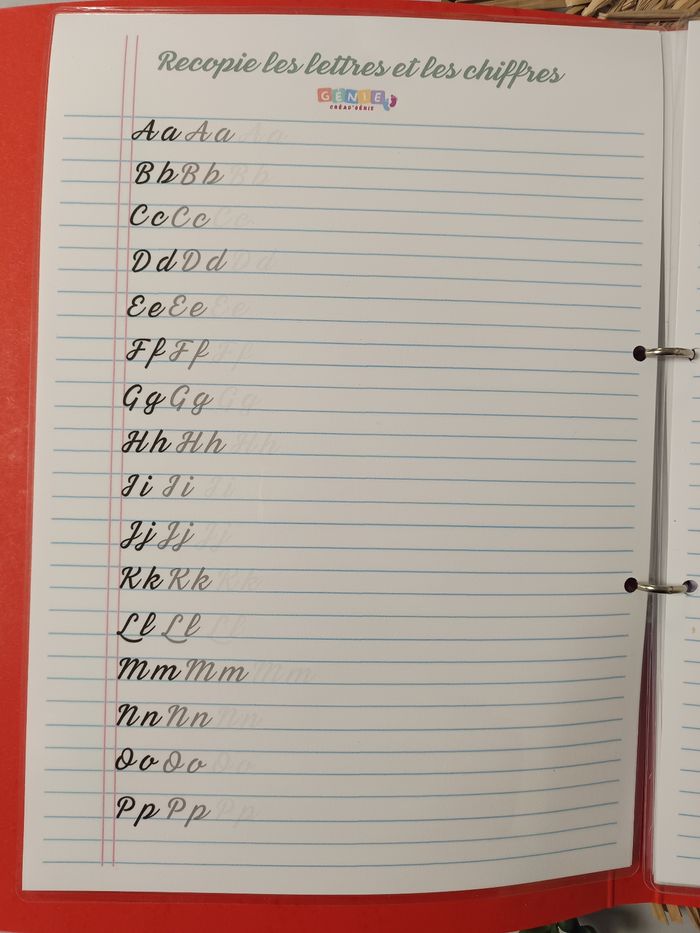 Recopie les lettres et les chiffres
GÉNIE
CRÉAD'GÉNIE
Aa Aa Aa
Bb Bb Bb
Cc Cc Cc
Dd Dd Dd
Ee Ee Ee
Ff Ff Ff
Gg Gg Gg
Hh Hh Hh
Ii Ii Ii
Jj Jj Jj
Kk Kk Kk
Ll Ll Ll
Mm Mm Mm
Nn Nn Nn
Oo Oo Oo
Pp Pp Pp